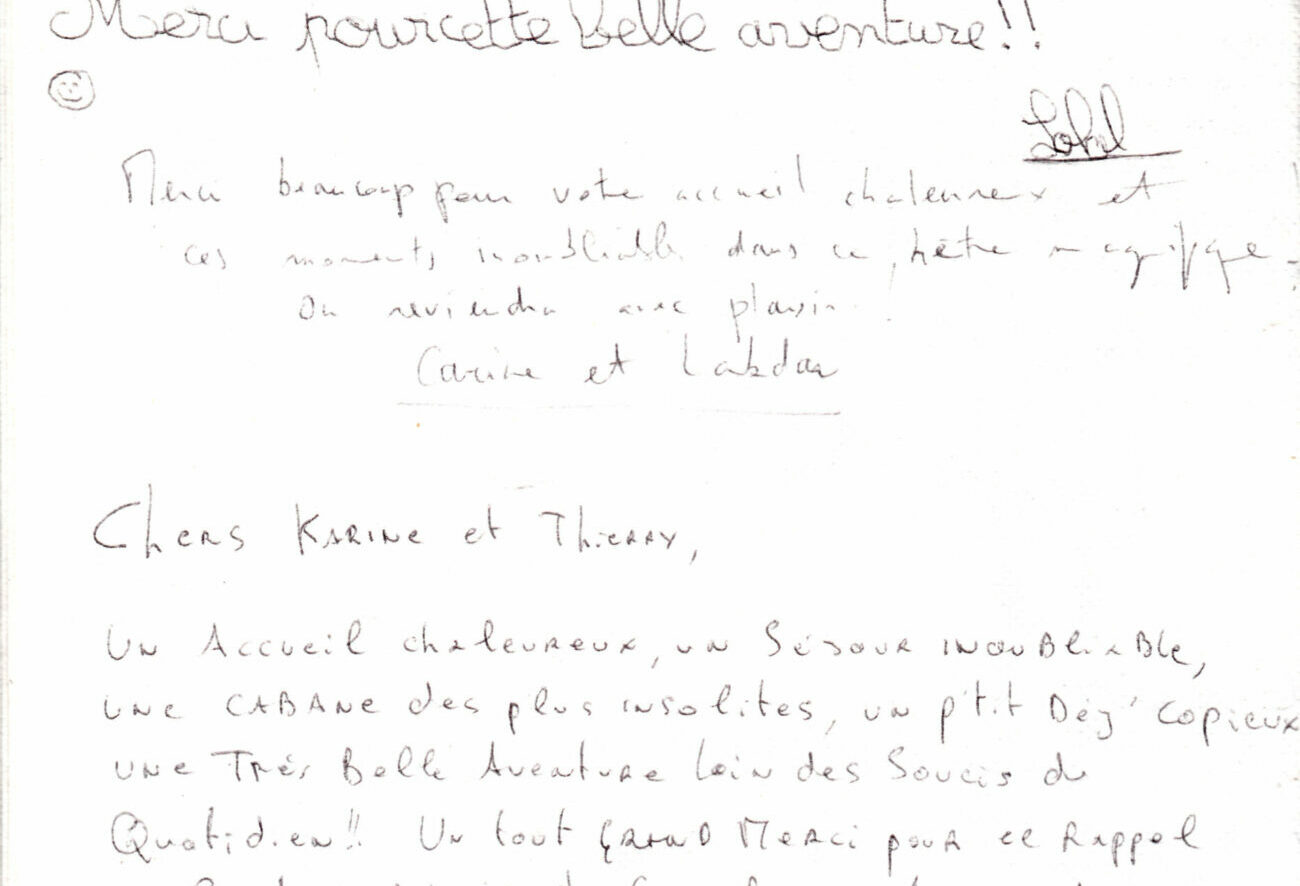 Merci pour cette belle aventure!!
Merci beaucoup pour votre accueil chaleureux et
ces moments inoubliable dans ce hêtre magnifique !
On reviendra avec plaisir !
Carine et Lakdar
Chers KARINE et Thierry,
UN Accueil chaleureux, un Séjour INOUBLiABle,
UNe CABANe des plus insolites, un p'tit Dèj' copieux
UNe Très Belle Aventure loin des Soucis du
Quotidien!! Un tout GRAND Merci pour ce Rappel